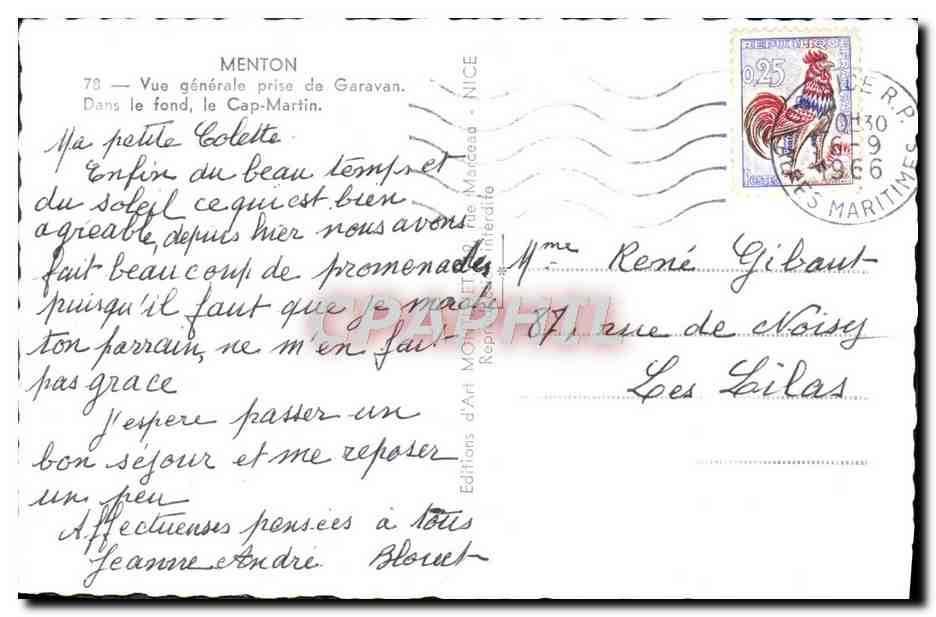 MENTON
78 — Vue générale prise de Garavan.
Dans le fond, le Cap-Martin.
Ma petite Colette
Enfin du beau temps et
du soleil ce qui est bien
agréable, depuis hier nous avons
fait beaucoup de promenades
puisqu'il faut que je mache
ton parrain, ne m'en fait
pas grace
J'espere passer un
bon séjour et me reposer
un peu
Affectueuses pensées à tous
Jeanne André Blouet
Editions d'Art MON rue Marceau - NICE
Repr interdite
REPUBLIQUE
0,25
POSTES
CE R.P.
30
6-9
1966
ES MARITIMES
Mme René Gibaut
87, rue de Noisy
Les Lilas
CPAPHIL